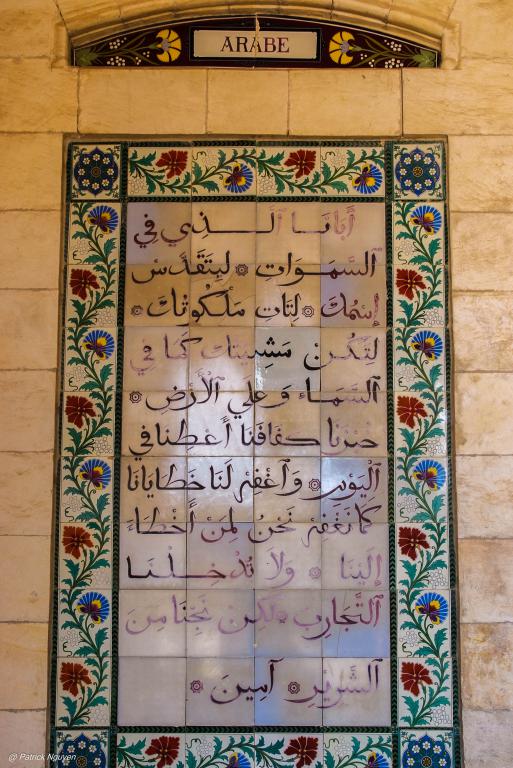 ARABE
أَبَانَا ٱلَّذِي فِي
ٱلسَّمَوَاتِ ۞ لِيَتَقَدَّسْ
إِسْمُكَ ۞ لِتَاتِ مَلَكُوتُكَ ۞
لِتَكُنْ مَشِيئَتُكَ كَمَا فِي
ٱلسَّمَاءِ وَعَلَي ٱلْأَرْضِ ۞
خُبْزَنَا كَفَافَنَا أَعْطِنَا فِي
ٱلْيَوْمِ ۞ وَٱغْفِرْ لَنَا خَطَايَانَا
كَمَا نَغْفِرُ نَحْنُ لِمَنْ أَخْطَاءَ
إِلَيْنَا ۞ وَلَا تُدْخِلْنَا
ٱلتَّجَارِبَ ۞ لَكِنْ نَجِّنَا مِنَ
ٱلشِّرِّيرِ ۞ آمِينَ ۞
@ Patrick Nguyen